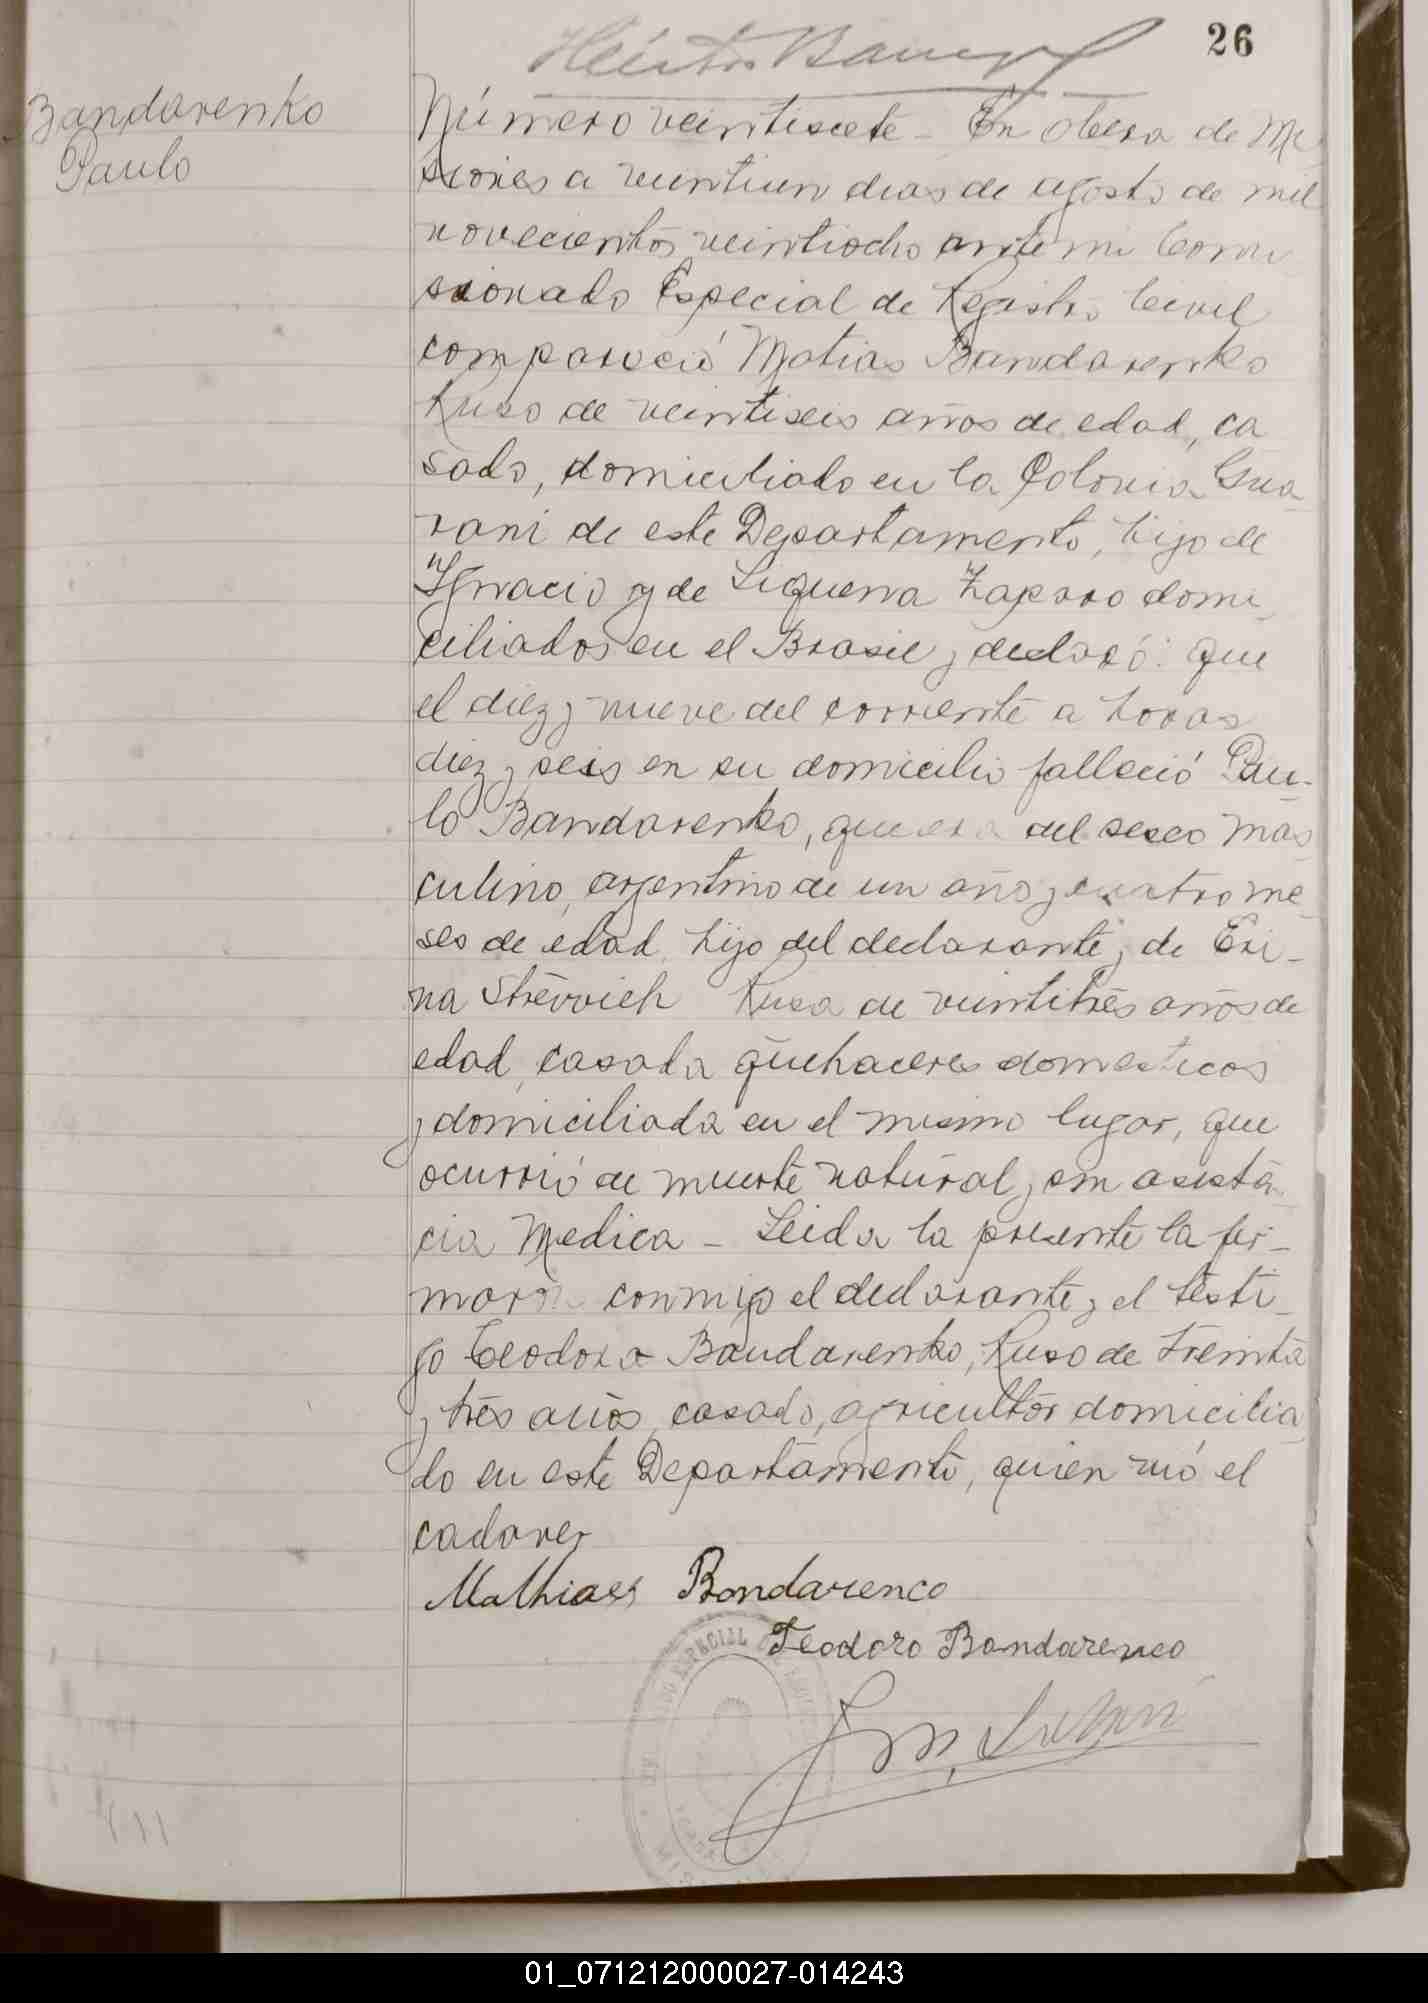 26
Bandarenko
Paulo
Número veintisiete - En Obera de Mi
siones a veintiun dias de agosto de mil
novecientos veintiocho ante mi Comi
sionado Especial de Registro Civil
compareció Matias Bandarenko
Ruso de veintiseis años de edad, ca
sado, domiciliado en la Colonia Gua
rani de este Departamento, hijo de
Ignacio y de Zaparo domi
ciliados en el Brasil y declaró: que
el diez y nueve del corriente a horas
diez y seis en su domicilio falleció Pau-
lo Bandarenko, que era del sexo mas
culino, argentino de un año y cuatro me
ses de edad, hijo del declarante y de Eri-
na Rusa de veintitres años de
edad, casada quehaceres domesticos
y domiciliada en el mismo lugar, que
ocurrió de muerte natural, sin asistén
cia Medica - Leida la presente la fir-
maron conmigo el declarante y el testi-
go Teodoro Bandarenko, Ruso de treinta
y tres años, casado, agricultor domicilia
do en este Departamento, quien vió el
cadaver
Mathias Bondarenco
Teodoro Bondarenco
01_071212000027-014243